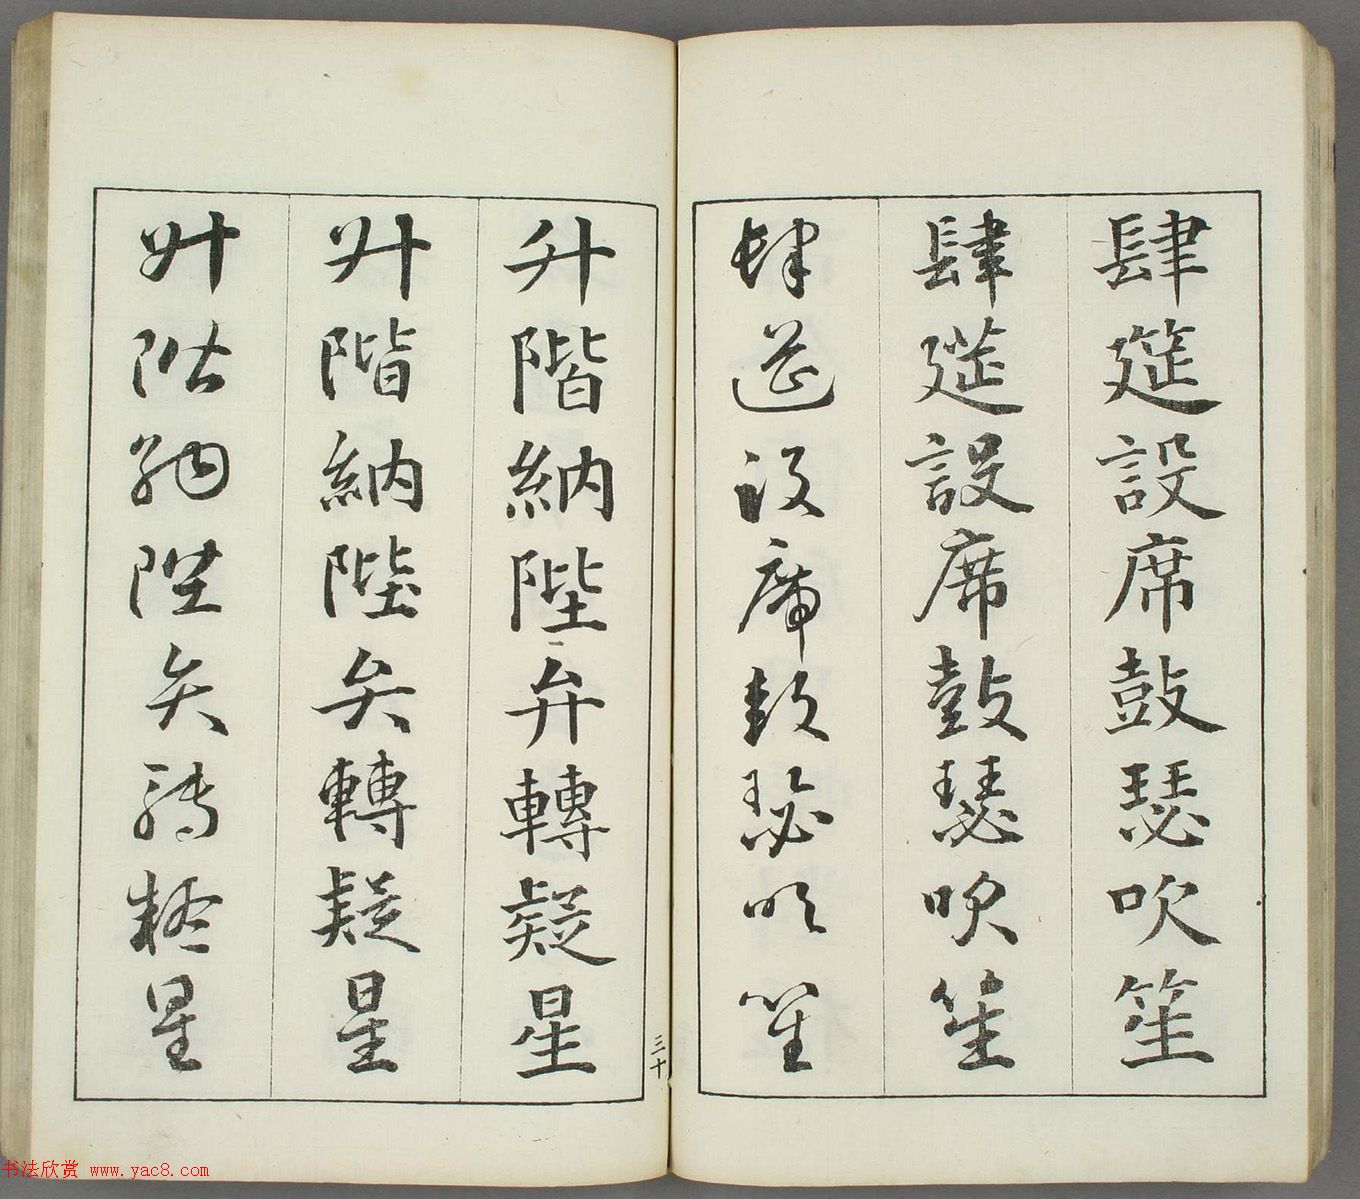 肆筵設席鼓瑟吹笙
肆筵設席鼓瑟吹笙
肆筵設席鼓瑟吹笙
三十
升階納陛弁轉疑星
升階納陛弁轉疑星
升階納陛弁轉疑星
书法欣赏 www.yac8.com